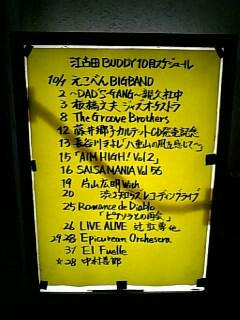 江古田 BUDDY 10月スケジュール
10/1 元こべんBIGBAND
2 〜DAD'S-GANG〜
3 板橋文夫 ジャズオーケストラ
8 The Groove Brothers
12 藤井郷子カルテットCD発売記念
13
15 「AIM HIGH! Vol.2」
16 SALSA MANIA Vol 56
19 片山広明 with
20 渋さ知らズ レコーディングライブ
25 Romance de Diablo
「ピアソラとの再会」
26 LIVE ALIVE
29.28 Epicurean Orchesera
31 El Fuelle
☆28